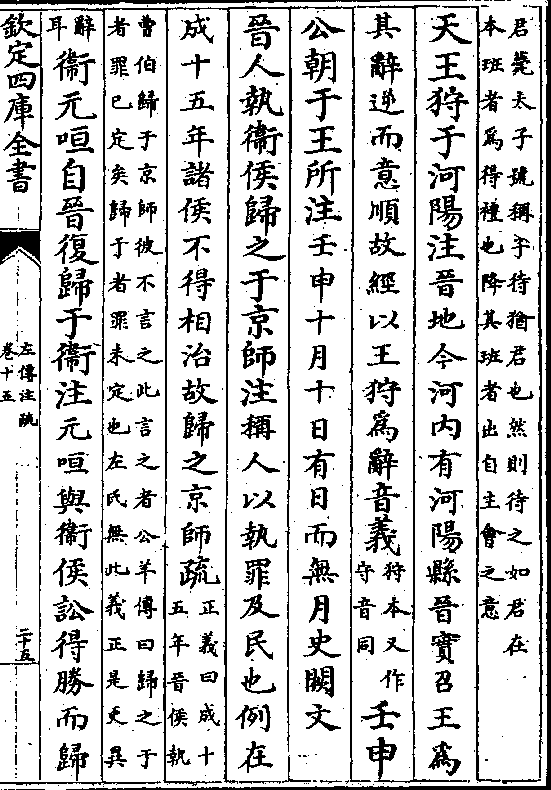 君薨天子號稱子待猶君也然則待之如君在
本班者為得禮也降其班者出自主會之意
天王狩于河陽注晉地今河內有河陽縣晉實召王為
其辭逆而意順故經以王狩為辭音義狩本又作
守音同
壬申
公朝于王所注壬申十月十日有日而無月史闕文
晉人執衞侯歸之于京師注稱人以執罪及民也例在
成十五年諸侯不得相治故歸之京師疏正義曰成十
五年晉侯執
曹伯歸于京師彼不言之此言之者公羊傳曰歸之于
者罪已定矣歸于者罪未定也左氏無此義正是史異
辭
耳
衞元咺自晉復歸于衞注元咺與衞侯訟得勝而歸
欽定四庫全書
左傳注疏
卷十五
二十五